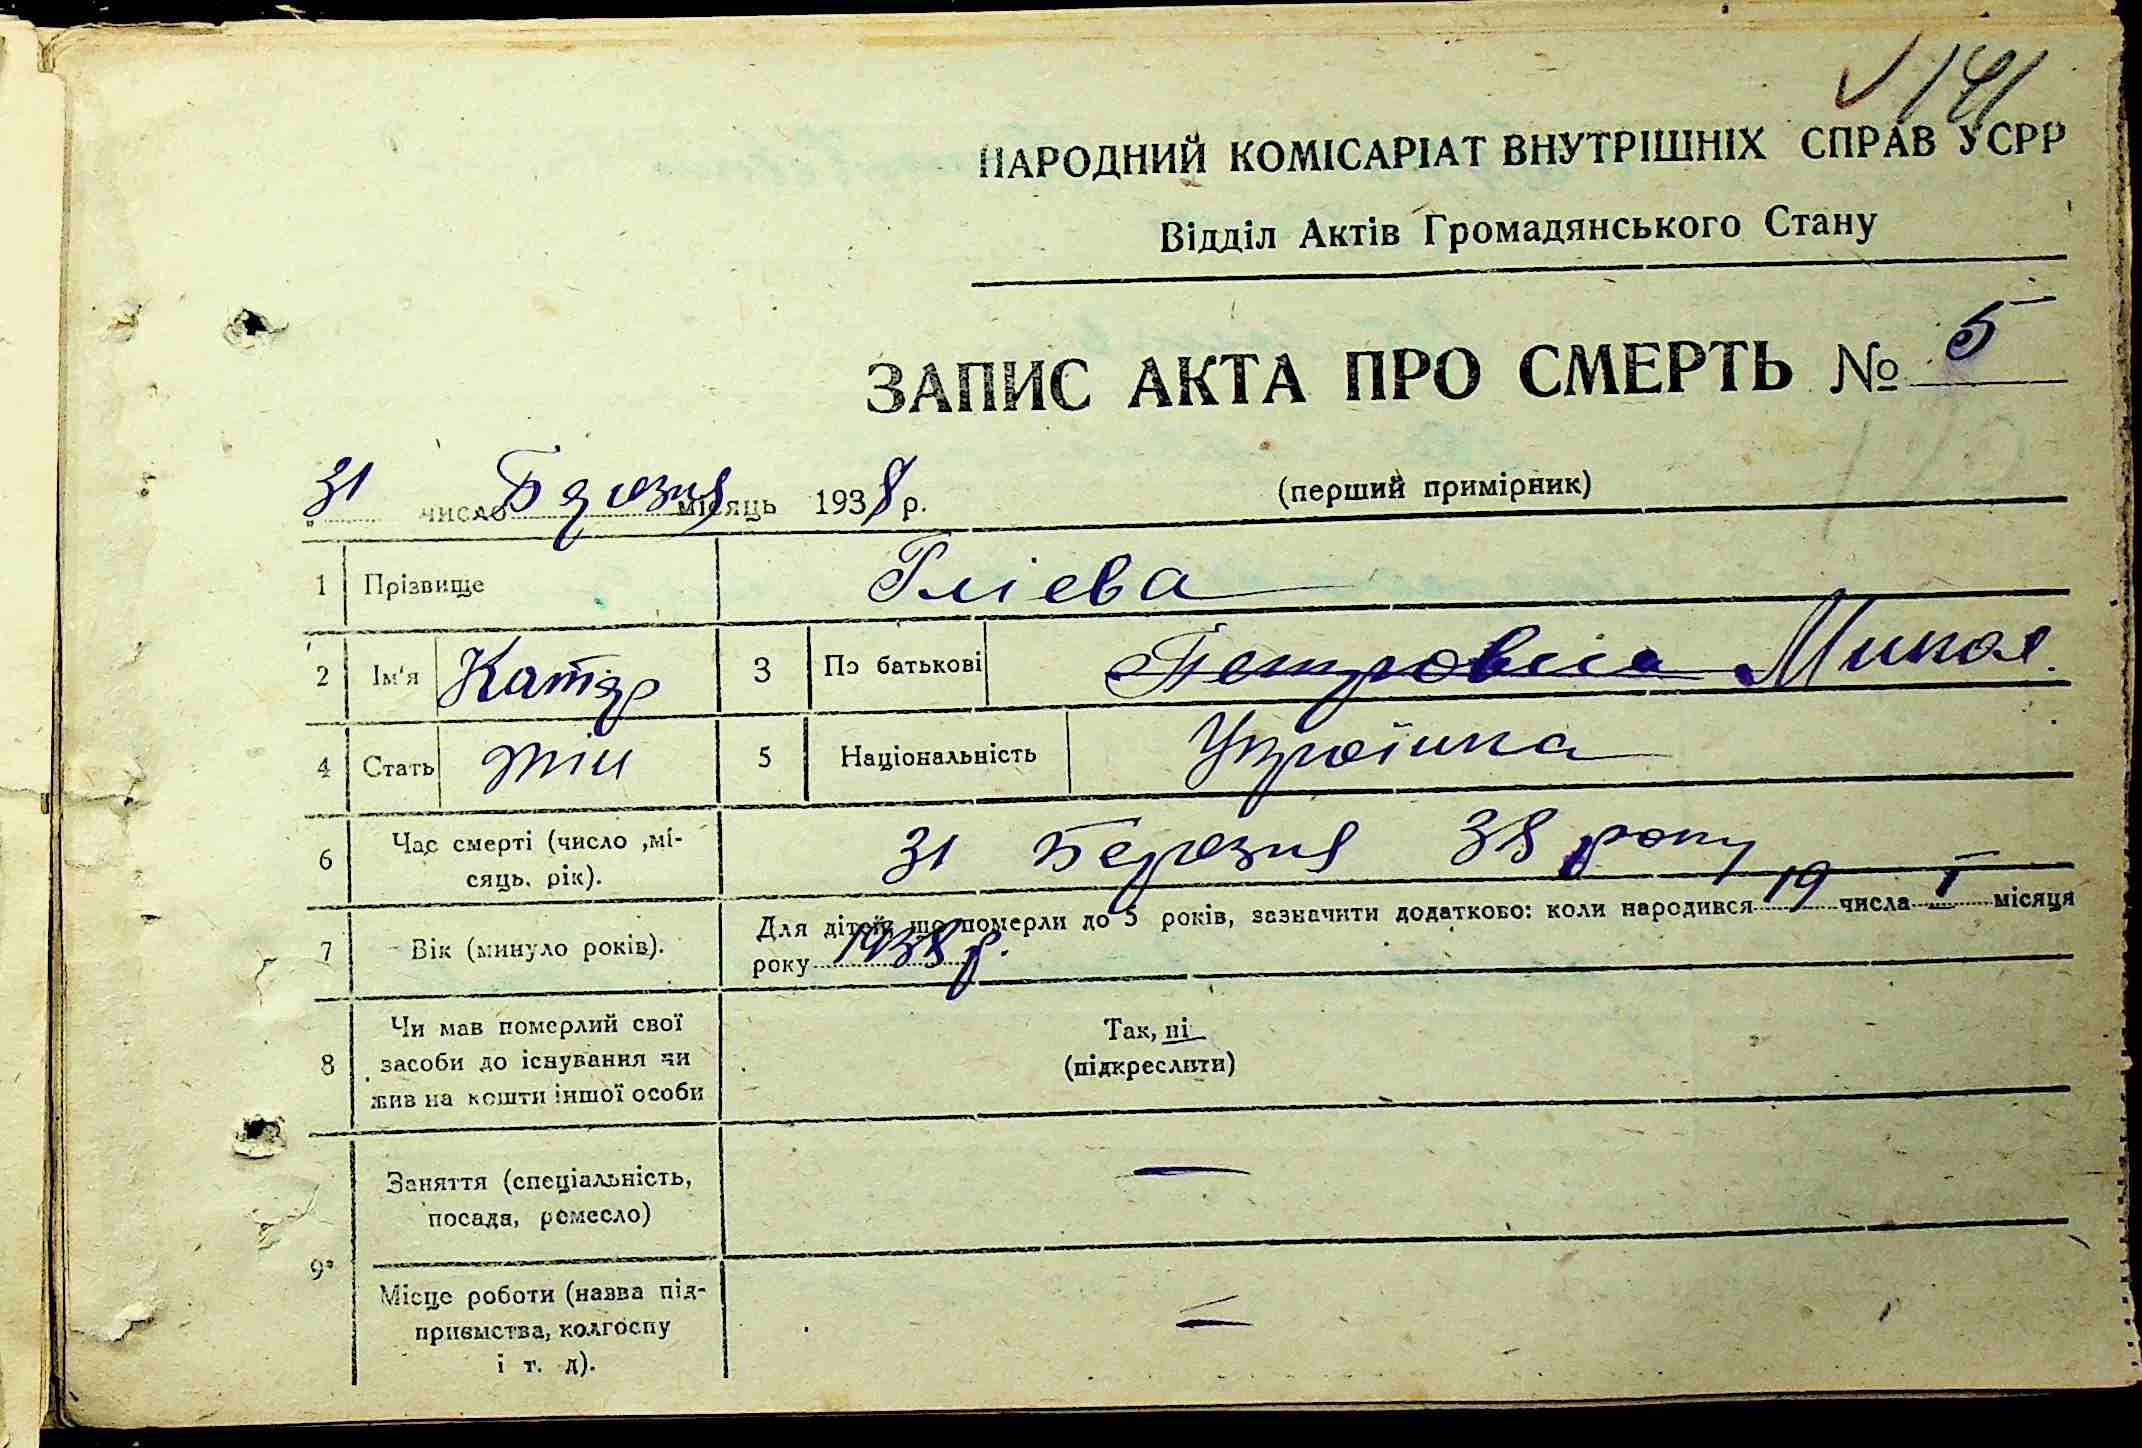 141
НАРОДНИЙ КОМІСАРІАТ ВНУТРІШНІХ СПРАВ УСРР
Відділ Актів Громадянського Стану
ЗАПИС АКТА ПРО СМЕРТЬ № 5
„ 31 число Березня місяць 1938 р.
(перший примірник)
1 Прізвище Глієва
2 Ім'я Катер 3 По батькові Петровна Микол.
4 Стать жін 5 Національність Українка
6 Час смерті (число ,мі-
сяць, рік).
31 Березня 38 року
7 Вік (минуло років).
Для дітей, що померли до 5 років, зазначити додатково: коли народився 19 числа I місяця
року 1938 р.
8 Чи мав померлий свої
засоби до існування чи
жив на кошти іншої особи
Так, ні
(підкреслити)
9 Заняття (спеціальність,
посада, ремесло)
—
Місце роботи (назва під-
приємства, колгоспу
і т. д).
—